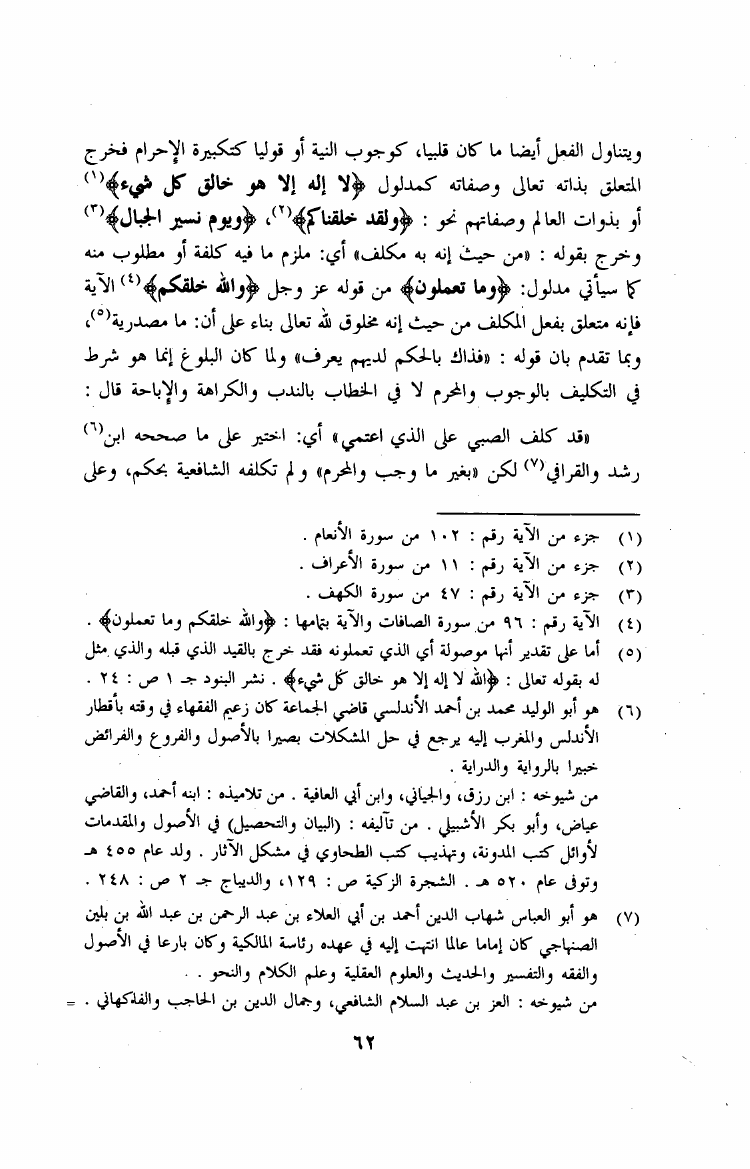 ويتناول الفعل أيضا ما كان قلبيا، كوجوب النية أو قوليا كتكبيرة الإحرام فخرج
المتعلق بذاته تعالى وصفاته كمدلول ﴿لا إله إلا هو خالق كل شيء﴾(١)
أو بذوات العالم وصفاتهم نحو : ﴿ولقد خلقناكم﴾(٢)، ﴿ويوم نسير الجبال﴾(٣)
وخرج بقوله : «من حيث إنه به مكلف» أي: ملزم ما فيه كلفة أو مطلوب منه
كما سيأتي مدلول: ﴿وما تعملون﴾ من قوله عز وجل ﴿والله خلقكم﴾(٤) الآية
فإنه متعلق بفعل المكلف من حيث إنه مخلوق لله تعالى بناء على أن: ما مصدرية(٥)،
وبما تقدم بان قوله : «فذاك بالحكم لديهم يعرف» ولما كان البلوغ إنما هو شرط
في التكليف بالوجوب والمحرم لا في الخطاب بالندب والكراهة والإباحة قال :
«قد كلف الصبي على الذي اعتمي» أي: اختير على ما صححه ابن(٦)
رشد والقرافي(٧) لكن «بغير ما وجب والمحرم» ولم تكلفه الشافعية بحكم، وعلى
(١) جزء من الآية رقم : ١٠٢ من سورة الأنعام .
(٢) جزء من الآية رقم : ١١ من سورة الأعراف .
(٣) جزء من الآية رقم : ٤٧ من سورة الكهف .
(٤) الآية رقم : ٩٦ من سورة الصافات والآية بتمامها : ﴿والله خلقكم وما تعملون﴾ .
(٥) أما على تقدير أنها موصولة أي الذي تعملونه فقد خرج بالقيد الذي قبله والذي مثل
له بقوله تعالى : ﴿الله لا إله إلا هو خالق كل شيء﴾ . نشر البنود جـ ١ ص : ٢٤ .
(٦) هو أبو الوليد محمد بن أحمد الأندلسي قاضي الجماعة كان زعيم الفقهاء في وقته بأقطار
الأندلس والمغرب إليه يرجع في حل المشكلات بصيرا بالأصول والفروع والفرائض
خبيرا بالرواية والدراية .
من شيوخه : ابن رزق، والجياني، وابن أبي العافية . من تلاميذه : ابنه أحمد، والقاضي
عياض، وأبو بكر الأشبيلي . من تآليفه : (البيان والتحصيل) في الأصول والمقدمات
لأوائل كتب المدونة، وتهذيب كتب الطحاوي في مشكل الآثار . ولد عام ٤٥٥ هـ
وتوفى عام ٥٢٠ هـ . الشجرة الزكية ص : ١٢٩، والديباج جـ ٢ ص : ٢٤٨ .
(٧) هو أبو العباس شهاب الدين أحمد بن أبي العلاء بن عبد الرحمن بن عبد الله بن بلين
الصنهاجي كان إماما عالما انتهت إليه في عهده رئاسة المالكية وكان بارعا في الأصول
والفقه والتفسير والحديث والعلوم العقلية وعلم الكلام والنحو .
من شيوخه : العز بن عبد السلام الشافعي، وجمال الدين بن الحاجب والفاكهاني . =
٦٢